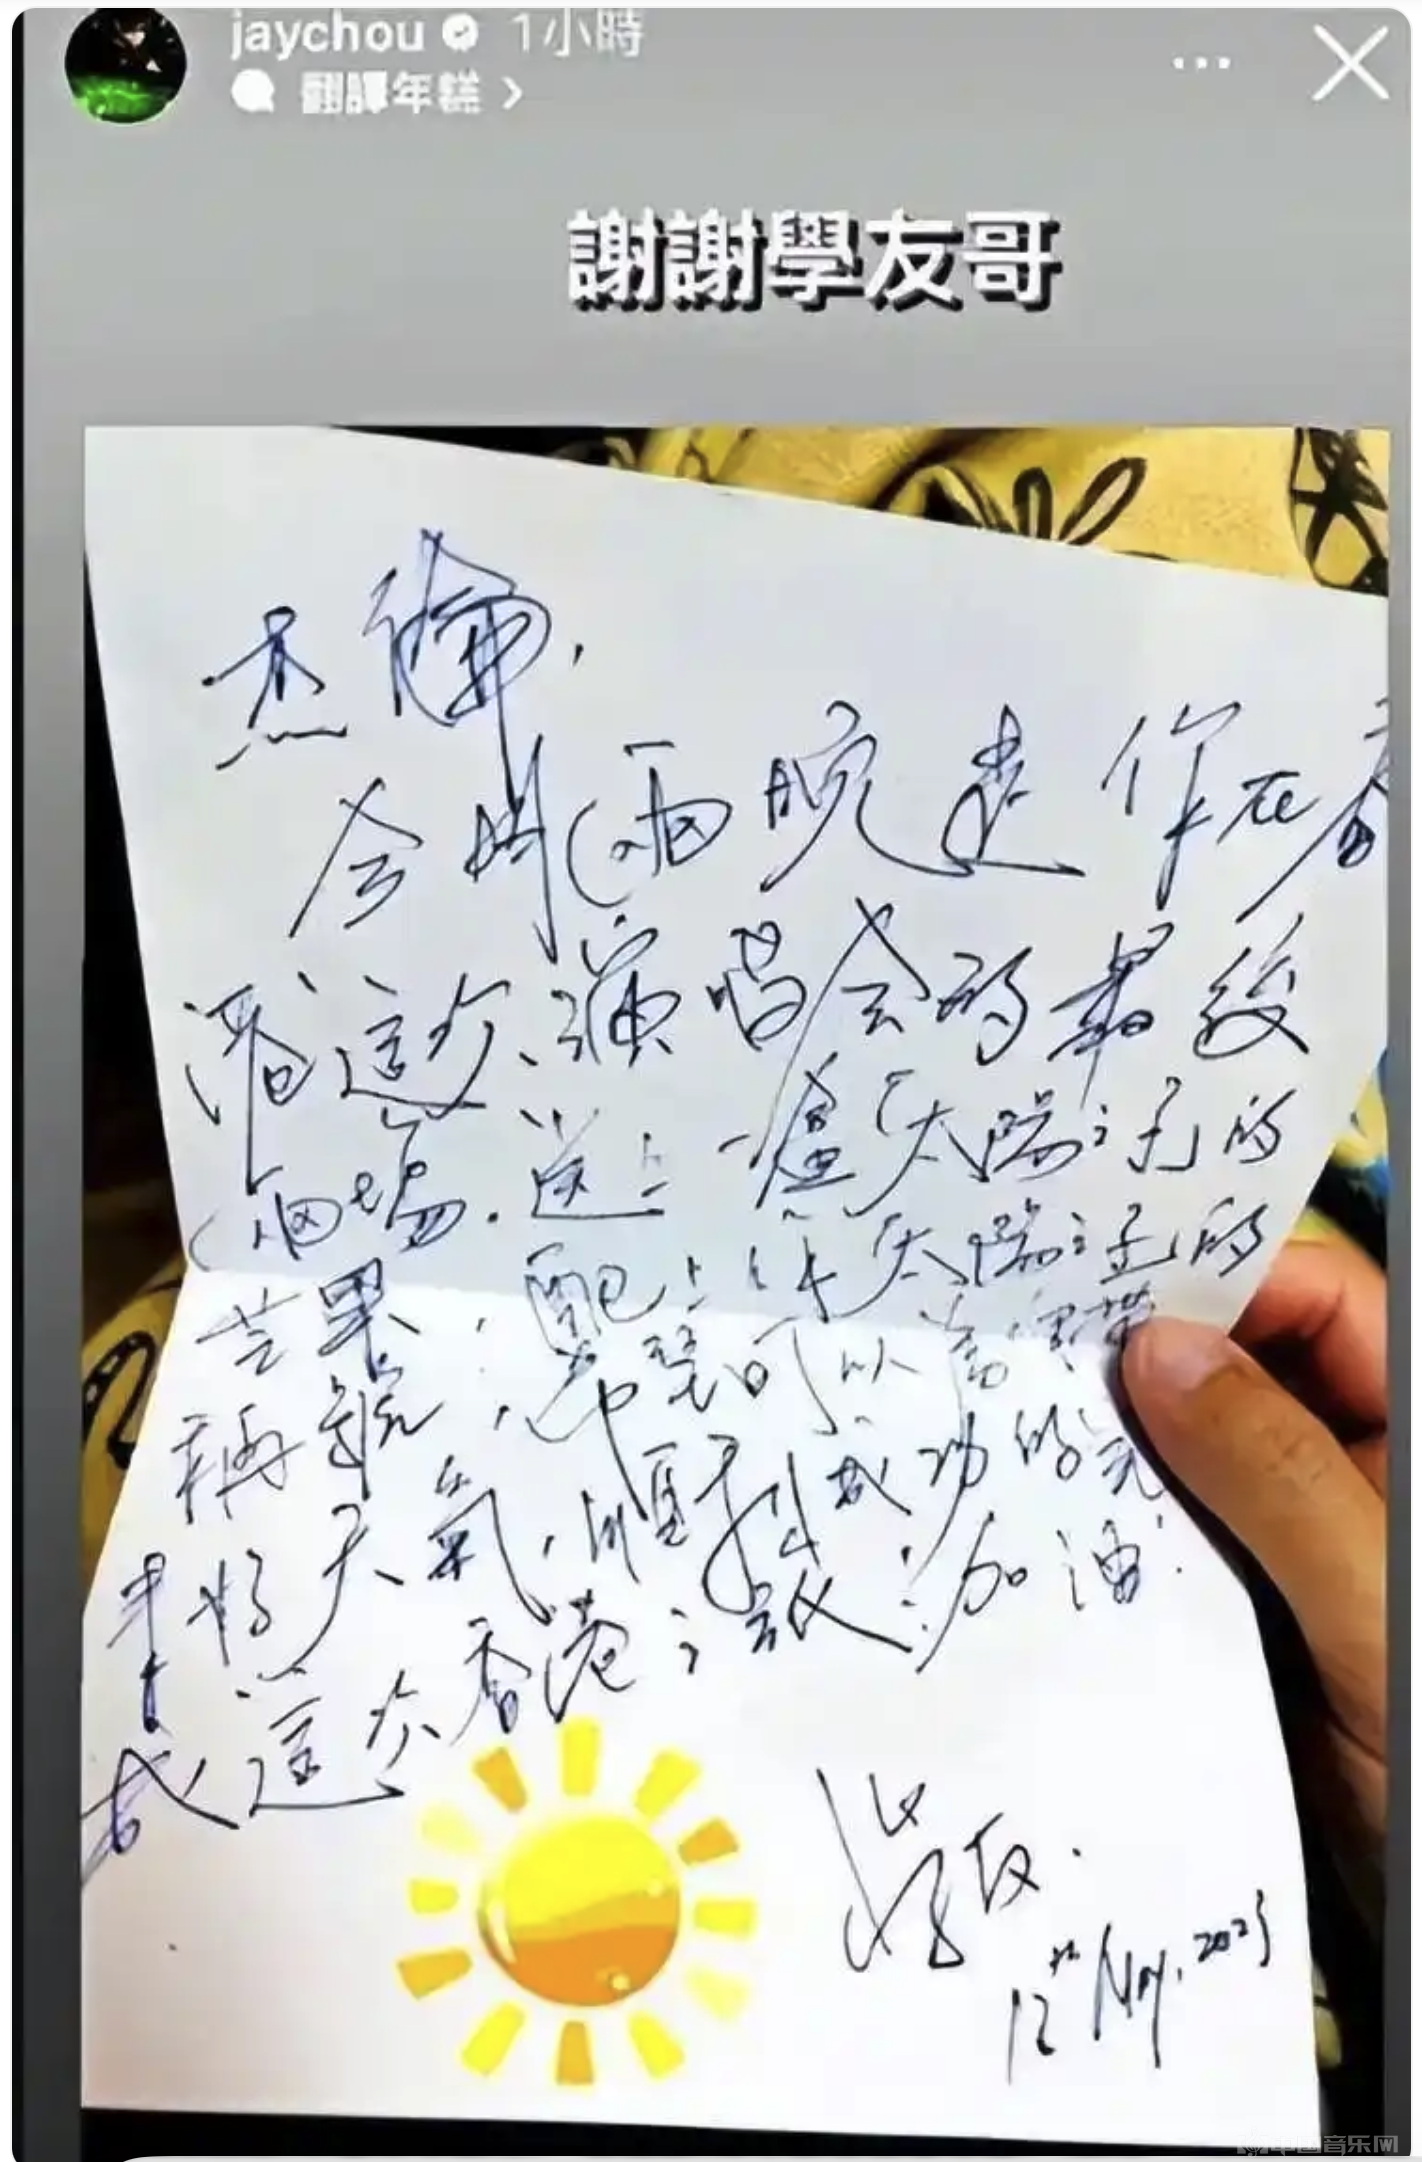 jaychou 1小時
翻譯年糕 >
謝謝學友哥
杰倫,
今明兩晚是你在香
港這次演唱会的最後
兩場.送上一盒太陽之
的
芒果,配上一個太陽
的
可以為你帶
來好天氣,順利成功的完
成這次香港之 ! 加油!
學友.
12th Nov, 2023
中国音乐网